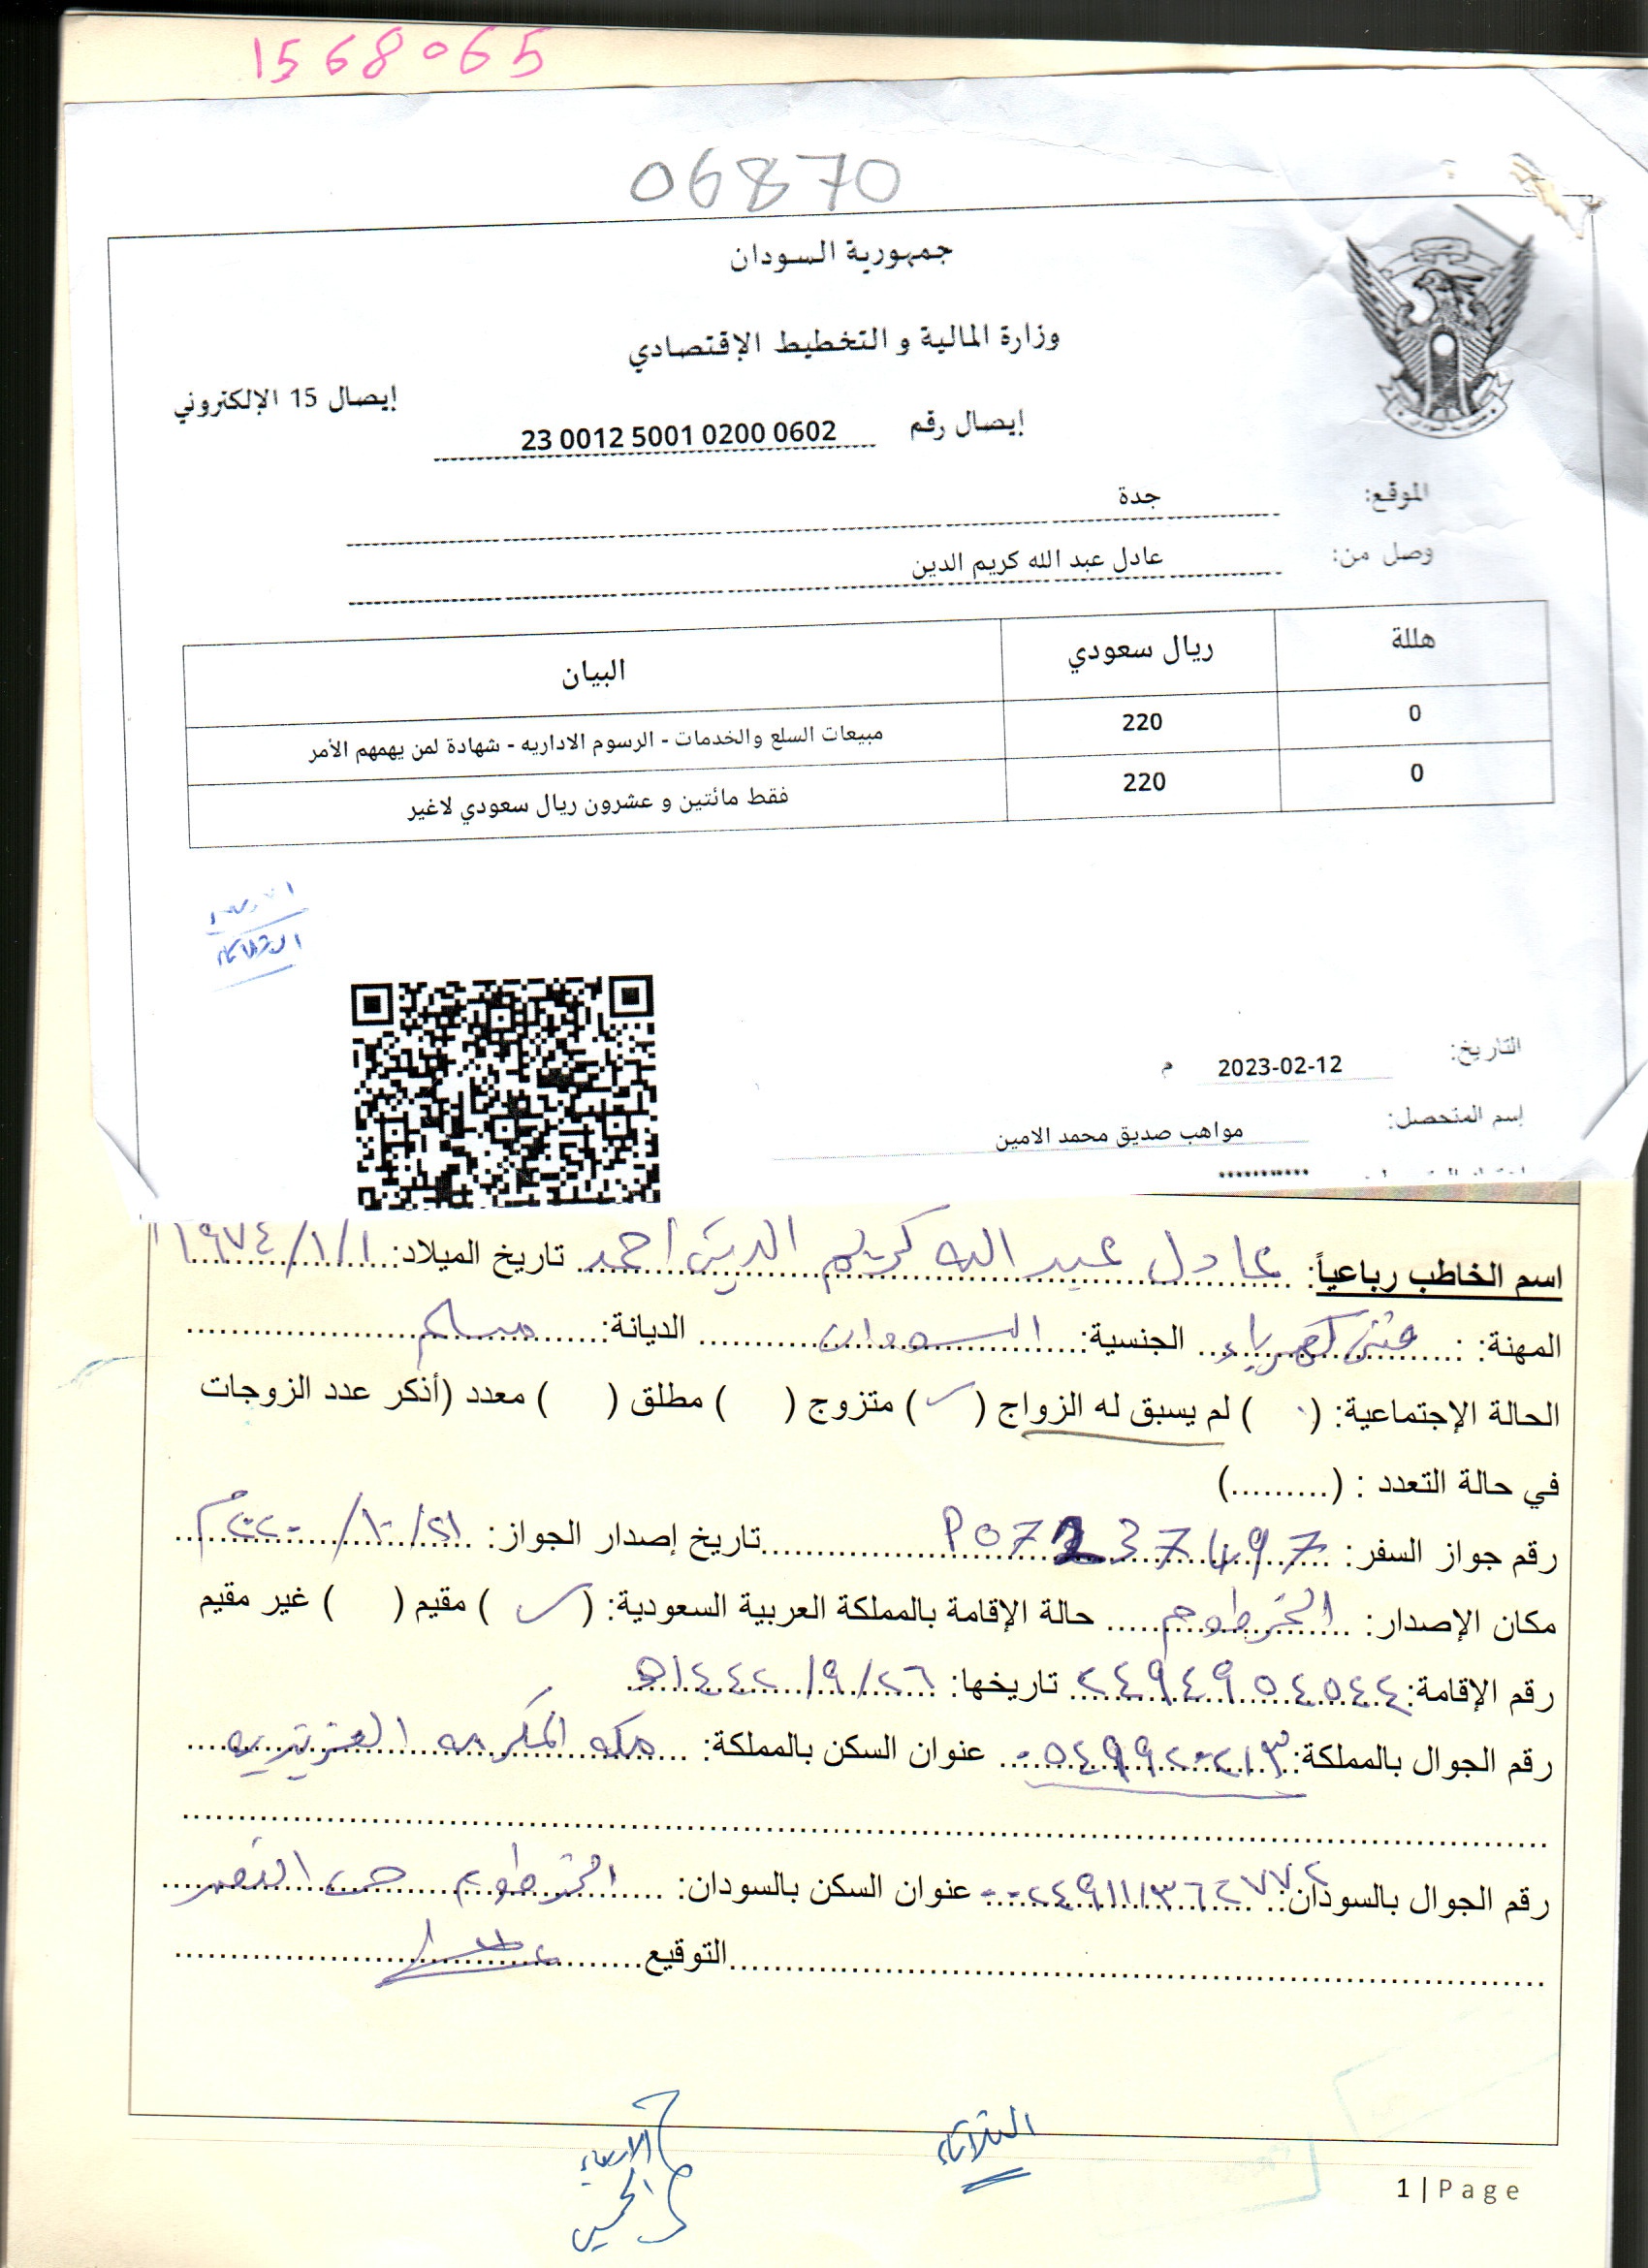 1568065
06870
جمهورية السودان
وزارة المالية و التخطيط الإقتصادي
إيصال 15 الإلكتروني
إيصال رقم 23 0012 5001 0200 0602
الموقع: جدة
وصل من: عادل عبد الله كريم الدين
هللة ريال سعودي البيان
0 220 مبيعات السلع والخدمات - الرسوم الاداريه - شهادة لمن يهمهم الأمر
0 220 فقط مائتين و عشرون ريال سعودي لاغير
الثلاثاء
التاريخ: 2023-02-12 م
إسم المتحصل: مواهب صديق محمد الامين
***********
اسم الخاطب رباعياً: عادل عبد الله كريم الدين احمد تاريخ الميلاد: ١/١/١٩٧٤
المهنة: : فني كهرباء الجنسية: السودان الديانة: مسلم
الحالة الإجتماعية: ( ) لم يسبق له الزواج (✓) متزوج ( ) مطلق ( ) معدد (أذكر عدد الزوجات
في حالة التعدد : (.........)
رقم جواز السفر: P07237497 تاريخ إصدار الجواز: ٢١/١٠/٢٠٢٠م
مكان الإصدار: الخرطوم حالة الإقامة بالمملكة العربية السعودية: (✓) مقيم ( ) غير مقيم
رقم الإقامة: ٢٤٩٤٩٥٤٥٤٤ تاريخها: ٢٦/٩/١٤٤٢ه
رقم الجوال بالمملكة: ٠٥٤٩٩٢٠٢١٣ عنوان السكن بالمملكة: مكه المكرمه العزيزيه
رقم الجوال بالسودان: ٠٠٢٤٩١١١٣٦٢٧٧٢ عنوان السكن بالسودان: الخرطوم حي النصر
التوقيع
الثلاثاء
الاربعاء
الخميس
1 | Page